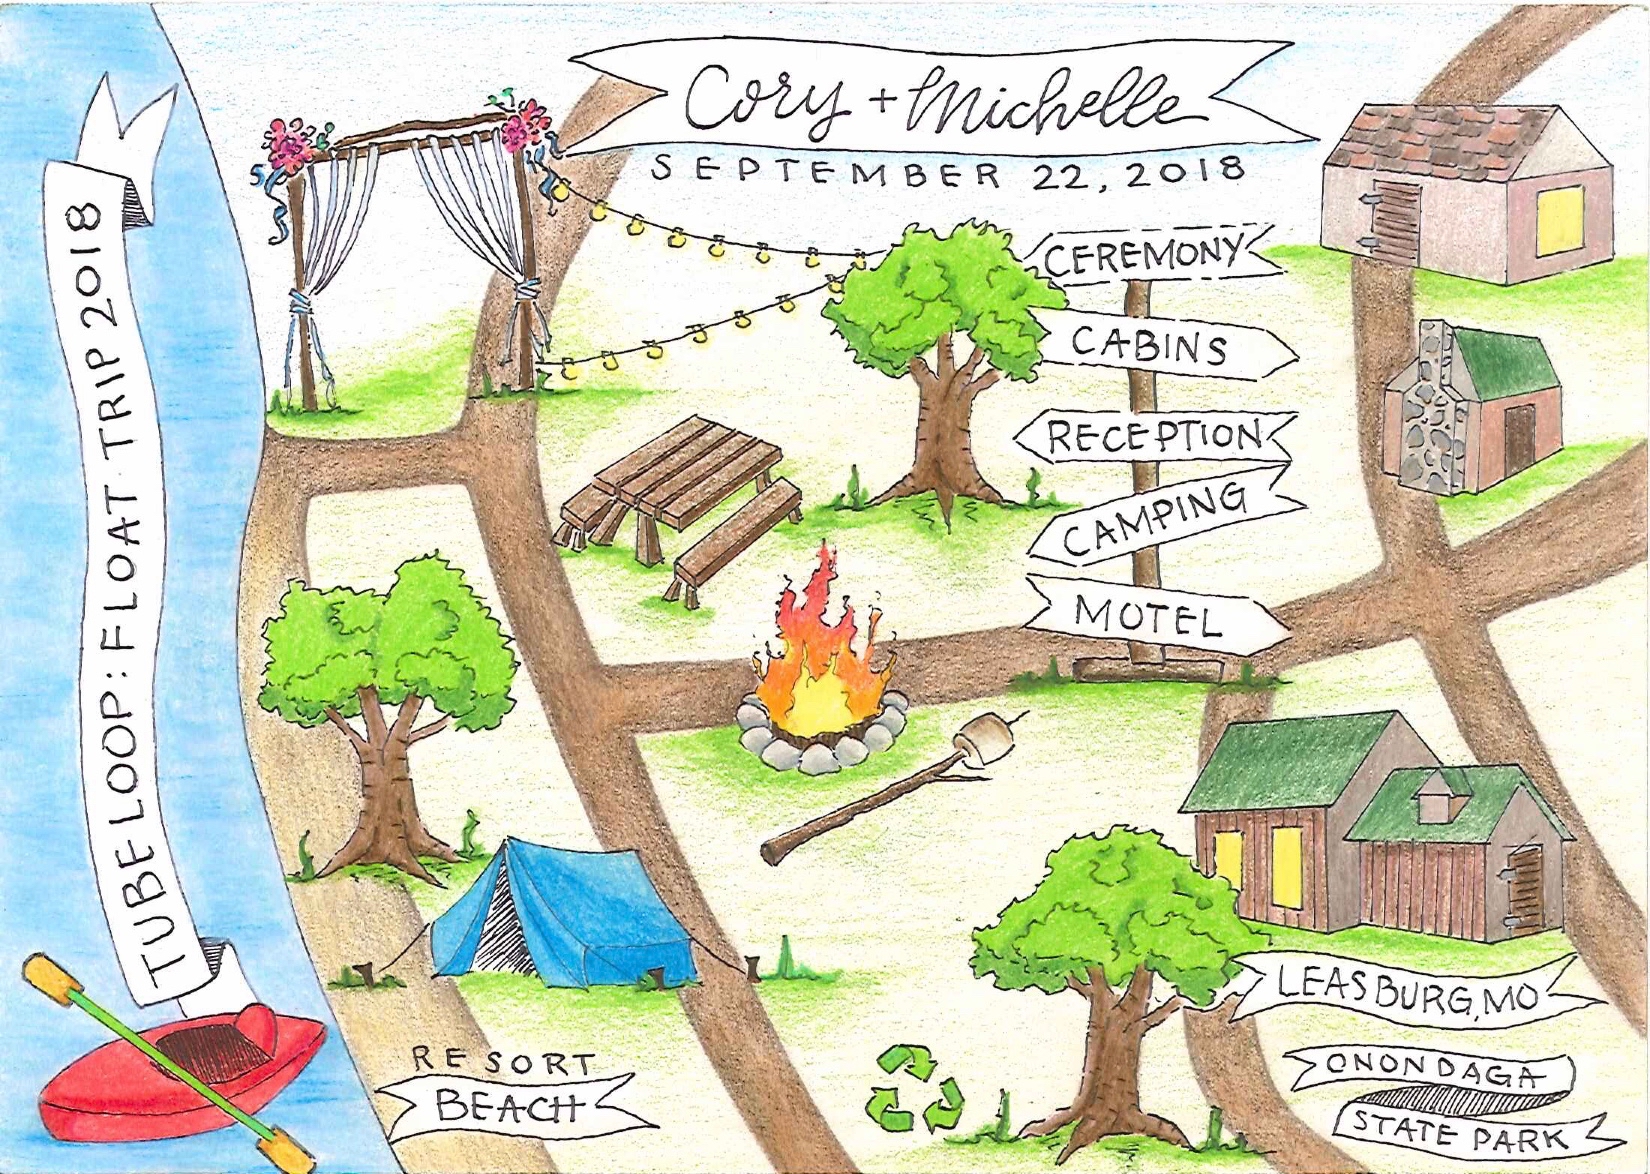 Cory + Michelle
SEPTEMBER 22, 2018
TUBE LOOP: FLOAT TRIP 2018
CEREMONY
CABINS
RECEPTION
CAMPING
MOTEL
LEASBURG, MO
ONONDAGA
STATE PARK
RESORT
BEACH